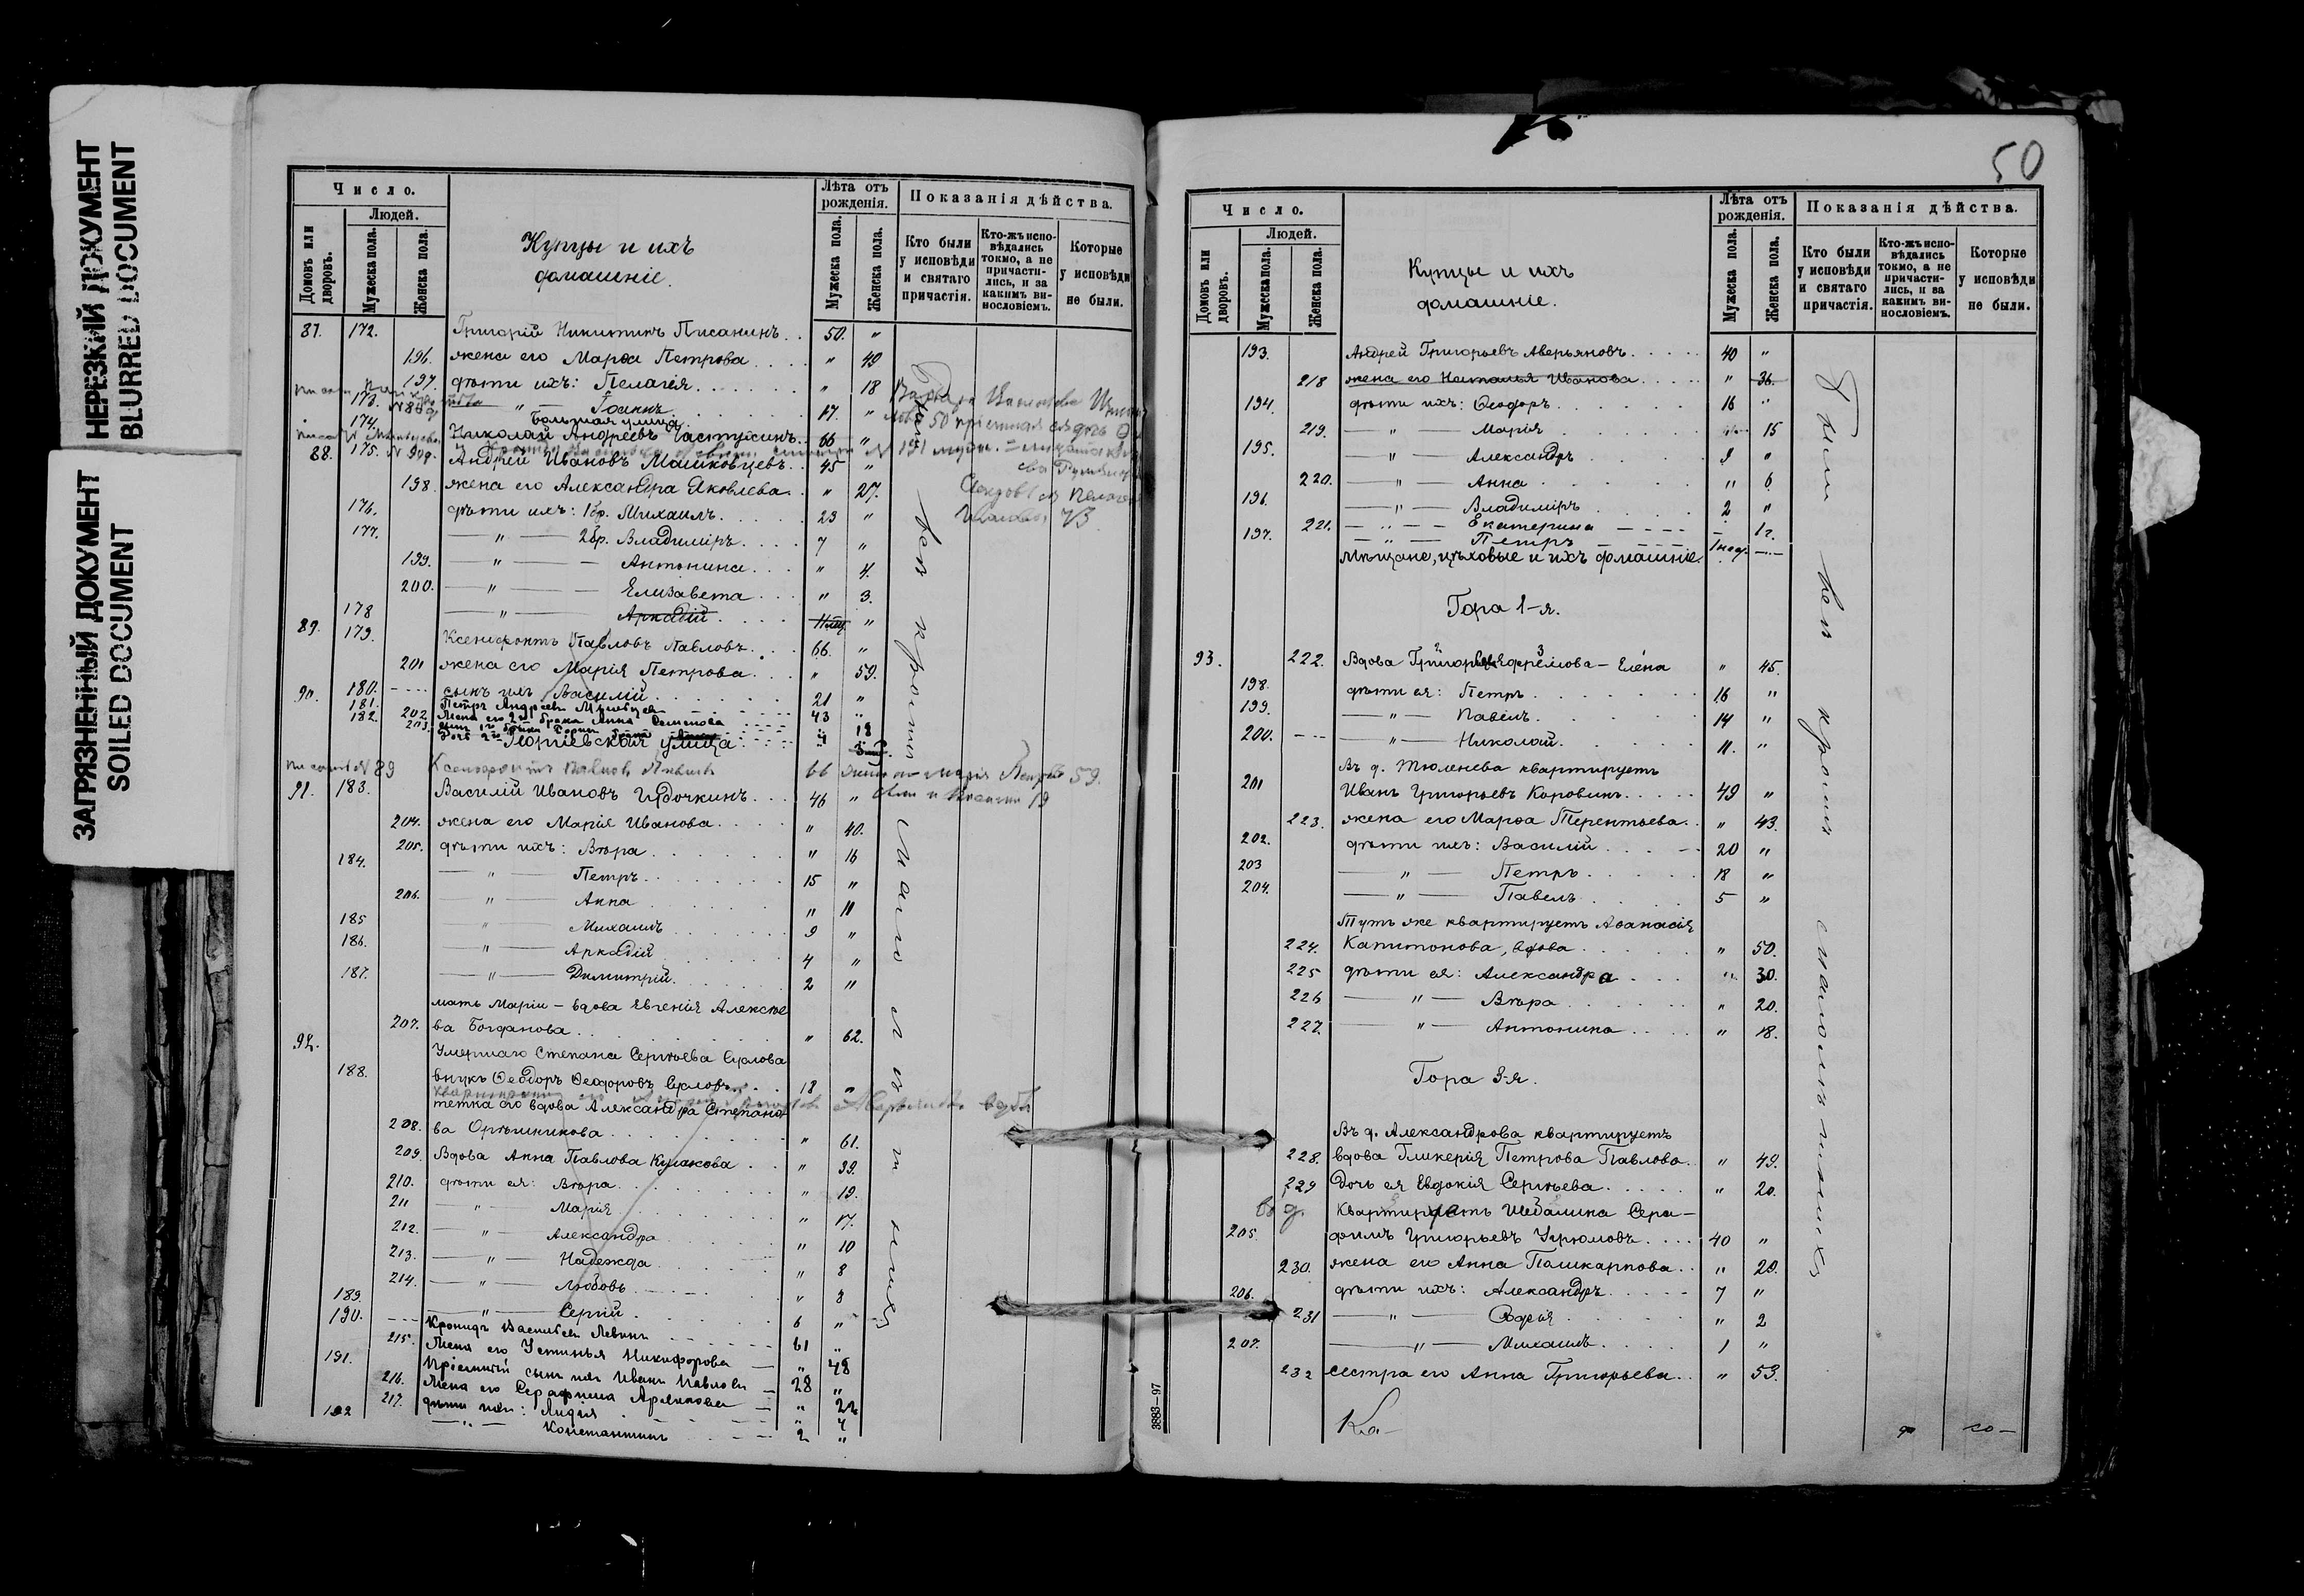 НЕРЕЗКИЙ ДОКУМЕНТ
BLURRED DOCUMENT
ЗАГРЯЗНЕННЫЙ ДОКУМЕНТ
SOILED DOCUMENT
Число.
Людей.
Домовъ или дворовъ.
Мужеска пола.
Женска пола.
Купцы и ихъ
домашніе.
Лѣта отъ рожденія.
Мужеска пола.
Женска пола.
Показанія дѣйства.
Кто были у исповѣди и святаго причастія.
Кто-жъ исповѣдались токмо, а не причастились, и за какимъ винословіемъ.
Которые у исповѣди не были.
87. 172. Григорій Никитинъ Писанинъ . . 50. "
196. жена его Марѳа Петрова . . . . " 49
197. дѣти ихъ: Пелагія . . . . . . " 18
173. — " — Іоаннъ . . . . . 17. "
Большая улица
174. Николай Андреевъ Частухинъ . . 66 "
88. 175. Андрей Ивановъ Машковцевъ . . 45 "
198. жена его Александра Яковлева . . " 27.
176. дѣти ихъ: 1 бр. Михаилъ . . . . . 23 "
177. — " — 2 бр. Владиміръ . . . . 7 "
199. — " — Антонина . . . " 4.
200. — " — Елизавета . . . " 3.
178 — " — Аркадій . . . . "
89. 179. Ксенофонтъ Павловъ Павловъ . . . 66. "
201 жена его Марія Петрова . . . " 59.
90. 180. сынъ ихъ Василій . . . . . 21 "
181. Петръ Андреевъ 43 "
182. 202. жена его 2го брака Анна Семенова " 18
203.
Георгіевская улица
№ 89 Ксенофонтъ Павловъ Павловъ 66 жена его Марія Петрова 59.
91. 183. Василій Ивановъ Чудочкинъ . . . 46 "
204. жена его Марія Иванова . . . . " 40.
205. дѣти ихъ: Вѣра . . . . . . " 16
184. — " — Петръ . . . . . . . 15 "
206. — " — Анна . . . . . . . " 11
185 — " — Михаилъ . . . . . . 9 "
186. — " — Аркадій . . . . . . 4 "
187. — " — Димитрій . . . . . . 2 "
мать Маріи – вдова Евгенія Алексѣе
207. ва Богданова . . " 62.
92. Умершаго Степана Сергѣева Суслова
188. внукъ Ѳеодоръ Ѳеодоровъ Сусловъ . . . 18 "
тетка его вдова Александра Степано
208. ва Орѣшникова . . . . . . . . " 61.
209. Вдова Анна Павлова Кулакова . . " 39.
210. дѣти ея: Вѣра . . . . . . . " 19.
211 — " — Марія . . . . . . " 17.
212. — " — Александра . . . . . " 10
213. — " — Надежда . . . . " 8
214. — " — Любовь . . . . . " 8
189. — " — Сергій . . . . . . 6 "
190. Кронидъ Васильевъ Левинъ 61 "
215. Жена его Устинья Никифорова — " 48
191. Пріемный сынъ ихъ Иванъ Павловъ — 28 "
216. Жена его Серафима — " 26
217. дѣти ихъ: Лидія . — " 4
192 — " — Константинъ 2 "
Были вси кромѣ малолѣтнихъ
50
Число.
Людей.
Домовъ или дворовъ.
Мужеска пола.
Женска пола.
Купцы и ихъ
домашніе.
Лѣта отъ рожденія.
Мужеска пола.
Женска пола.
Показанія дѣйства.
Кто были у исповѣди и святаго причастія.
Кто-жъ исповѣдались токмо, а не причастились, и за какимъ винословіемъ.
Которые у исповѣди не были.
193. Андрей Григорьевъ Аверьяновъ . . . . . 40 "
218 жена его Наталья Иванова . . . . . " 36.
194. дѣти ихъ: Ѳеодоръ . . . . . . . 16 "
219. — " — Марія . . . . . . 15
195. — " — Александръ . . . . . 9 "
220. — " — Анна . . . . . . " 6
196. — " — Владиміръ . . . . . 2 "
221. — " — Екатерина — 1 г.
197. — " — Петръ 1 нед. —
Мѣщане, цѣховые и ихъ домашніе.
Гора 1-я.
93. 222. Вдова Григорьева Ефремова – Елена " 45.
198. дѣти ея: Петръ . . . . . . . 16 "
199. — " — Павелъ . . . . . . 14 "
200. — " — Николай . . . . . . 11. "
Въ д. Тюленева квартируетъ
201 Иванъ Григорьевъ Коровинъ . . . . . 49 "
223. жена его Марѳа Терентьева . . " 43.
202. дѣти ихъ: Василій . . . . 20 "
203 — " — Петръ . . . . . 18 "
204. — " — Павелъ . . . . . 5 "
Тутъ же квартируетъ Аѳанасія
224. Капитонова, вдова . . . . . " 50.
225 дѣти ея: Александра . . . . " 30.
226 — " — Вѣра . . . . . . " 20.
227. — " — Антонина . . . . " 18.
Гора 3-я.
Въ д. Александрова квартируетъ
228. вдова Гликерія Петрова Павлова . . " 49.
229 дочь ея Евдокія Сергѣева . . . . . " 20.
въ д. Квартируетъ Шебалина Сера–
205. фимъ Григорьевъ Угрюмовъ . . . . 40 "
230. жена его Анна Поликарпова . . " 29.
206. дѣти ихъ: Александръ . . . . . 7 "
231 — " — Софія . . . . . . " 2
207. — " — Михаилъ . . . . . 1 "
232 сестра его Анна Григорьева . . " 53.
Были вси кромѣ малолѣтнихъ
3883—97
Ка–